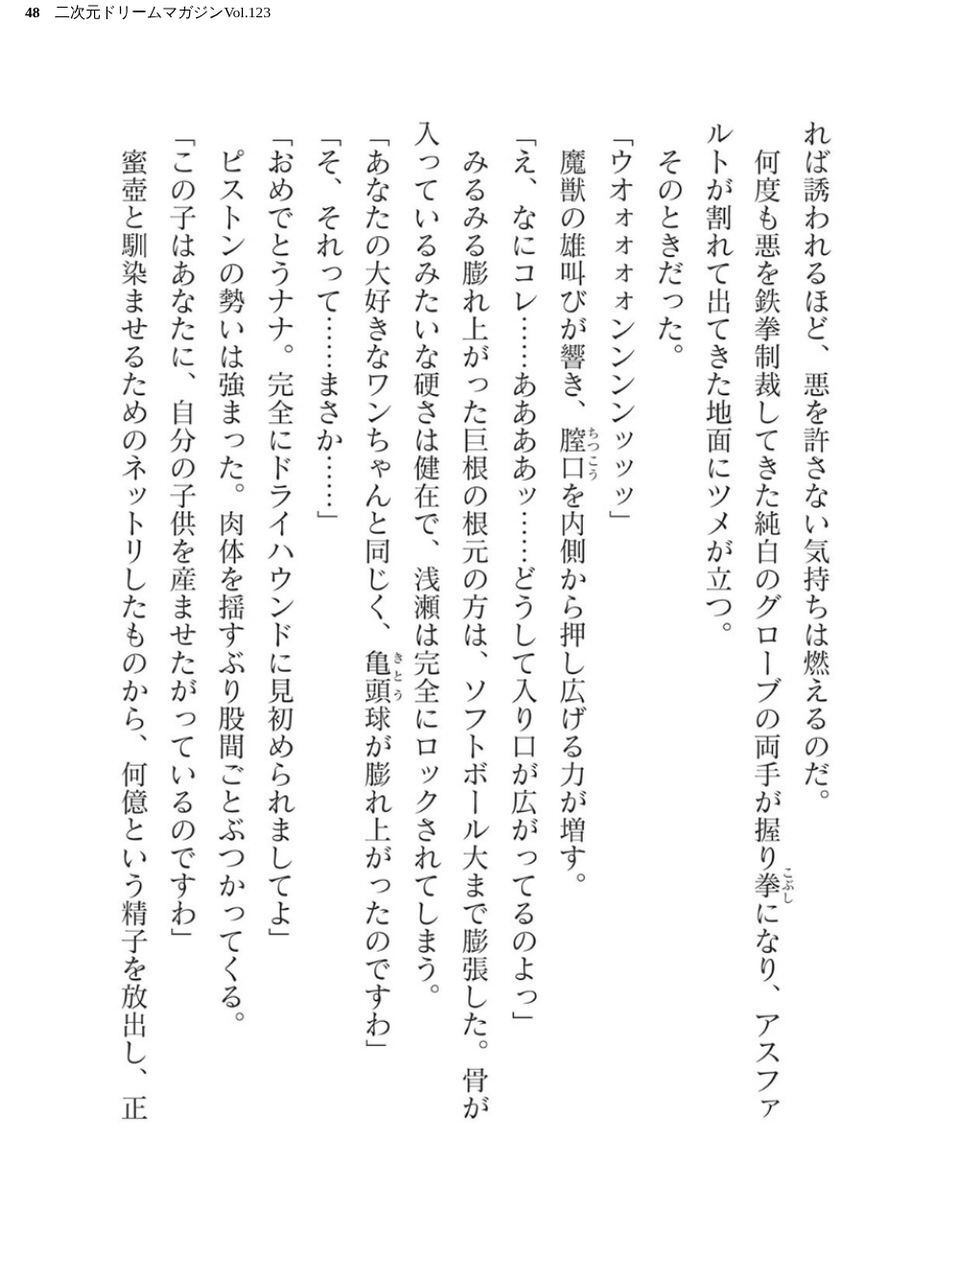 48 二次元ドリームマガジンVol.123
れば誘われるほど、悪を許さない気持ちは燃えるのだ。
　何度も悪を鉄拳制裁してきた純白のグローブの両手が握り拳になり、アスファ
ルトが割れて出てきた地面にツメが立つ。
　そのときだった。
「ウオォォォォンンンンッッッ」
　魔獣の雄叫びが響き、膣口を内側から押し広げる力が増す。
「え、なにコレ……ああああッ……どうして入り口が広がってるのよっ」
　みるみる膨れ上がった巨根の根元の方は、ソフトボール大まで膨張した。骨が
入っているみたいな硬さは健在で、浅瀬は完全にロックされてしまう。
「あなたの大好きなワンちゃんと同じく、亀頭球が膨れ上がったのですわ」
「そ、それって……まさか……」
「おめでとうナナ。完全にドライハウンドに見初められましてよ」
　ピストンの勢いは強まった。肉体を揺すぶり股間ごとぶつかってくる。
「この子はあなたに、自分の子供を産ませたがっているのですわ」
　蜜壺と馴染ませるためのネットリしたものから、何億という精子を放出し、正